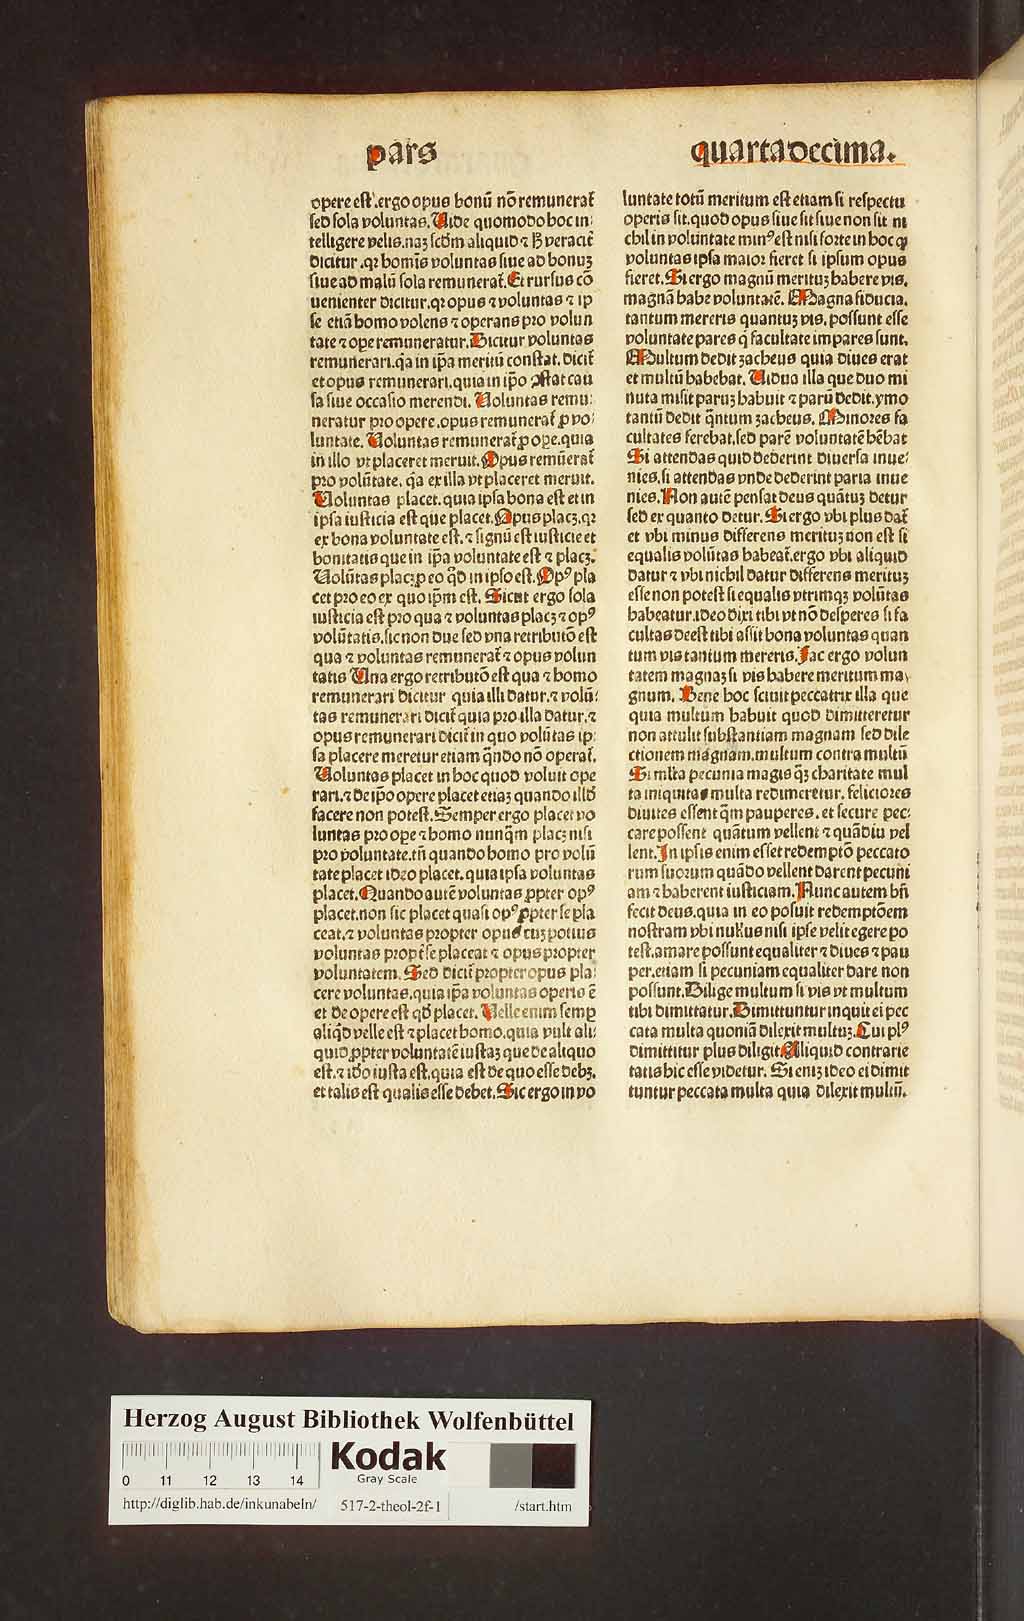 pars
quartadecima.
opere est. ergo opus bonū nō remunerat̃
sed sola voluntas. Uide quomodo hoc in-
telligere velis. naʒ scd̃m aliquid ⁊ ꝟ veracit̃
dicitur. qꝛ hoīnis voluntas siue ad bonuʒ
siue ad malū sola remunerat̃. Et rursus cō
uenienter dicitur. qꝛ opus ⁊ voluntas ⁊ ip
se etiā homo volens ⁊ operans pro volun
tate ⁊ ope remuneratur. Dicitur voluntas
remunerari. q̄a in ip̄a meritū constat. dicit̃
et opus remunerari. quia in ip̄o ꝯstat cau
sa siue occasio merendi. Uoluntas remu-
neratur pro opere. opus remunerat̃ ꝓ vo-
luntate. Uoluntas remunerat̃ ꝓ ope. quia
in illo vt placeret meruit. Opus remūerat̃
pro volūtate. q̄a ex illa vt placeret meruit.
Uoluntas placet. quia ipsa bona est et in
ipsa iusticia est que placet. Opus placʒ. qꝛ
ex bona voluntate est. ⁊ signū est iusticie et
bonitatis que in ip̄a voluntate est ⁊ placʒ.
Uolūtas placʒ ꝓ eo q̄d in ipso est. Opꝰ pla
cet pro eo ex quo ip̄m est. Sicut ergo sola
iusticia est pro qua ⁊ voluntas placʒ ⁊ opꝰ
volūtatis. sic non due sed vna retributō est
qua ⁊ voluntas remunerat̃ ⁊ opus volun
tatis Una ergo retributō est qua ⁊ homo
remunerari dicitur quia illi datur. ⁊ volū-
tas remunerari dicit̃ quia pro illa datur. ⁊
opus remunerari dicit̃ in quo volūtas ip-
sa placere meretur etiam q̄ndo nō operat̃.
Uoluntas placet in hoc quod voluit ope
rari. ⁊ de ip̄o opere placet etiaʒ quando illd̓
facere non potest. Semper ergo placet vo
luntas pro ope ⁊ homo nunq̄m placʒ nisi
pro voluntate. tñ quando homo pro volū
tate placet ideo placet. quia ipsa voluntas
placet. Quando autē voluntas ꝓpter opꝰ
placet. non sic placet quasi opꝰ ꝓpter se pla
ceat. ⁊ voluntas propter opus cuʒ potius
voluntas propt̃ se placeat ⁊ opus propter
voluntatem. Sed dicit̃ propter opus pla-
cere voluntas. quia ip̄a voluntas operis ē
et de opere est qd̓ placet. Uelle enim semꝑ
aliq̄d velle est ⁊ placet homo. quia vult ali-
quid ꝓpter voluntatē iustaʒ que de aliquo
est. ⁊ id̓o iusta est. quia est de quo esse debʒ.
et talis est qualis esse debet. Sic ergo in vo
luntate totū meritum est etiam si respectu
operis sit. quod opus siue sit siue non sit ni
chil in voluntate minꝰ est nisi forte in hoc ꝙ
voluntas ipsa maior fieret si ipsum opus
fieret. Si ergo magnū merituʒ habere vis.
magnā habe voluntatē. Magna fiducia.
tantum mereris quantuʒ vis. possunt esse
voluntate pares q̄ facultate impares sunt.
Multum dedit zacheus quia diues erat
et multū habebat. Uidua illa que duo mi
nuta misit paruʒ habuit ⁊ parū dedit. ymo
tantū dedit q̄ntum zacheus. Minores fa
cultates ferebat. sed parē voluntatē hēbat
Si attendas quid dederint diuersa inue-
nies. si attendas vnde dederint paria inue
nies. Non autē pensat deus quātuʒ detur
sed ex quanto detur. Si ergo vbi plus dat̃
et vbi minus differens merituʒ non est si
equalis volūtas habeat̃. ergo vbi aliquid
datur ⁊ vbi nichil datur differens merituʒ
esse non potest si equalis vtrimqʒ volūtas
habeatur. ideo dixi tibi vt nō desperes si fa
cultas deest tibi assit bona voluntas quan
tum vis tantum mereris. Fac ergo volun
tatem magnaʒ si vis habere meritum ma-
gnum. Bene hoc sciuit peccatrix illa que
quia multum habuit quod dimitteretur
non attulit substantiam magnam sed dile
ctionem magnam. multum contra multū
Si mlta pecunia magis q̄ʒ charitate mul
ta iniquitas multa redimeretur. feliciores
diuites essent q̄m pauperes. et secure pec-
care possent quātum vellent ⁊ quādiu vel
lent. In ipsis enim esset redemptō peccato
rum suorum quādo vellent darent pecuni
am ⁊ haberent iusticiam. Nunc autem bñ
fecit deus. quia in eo posuit redemptōem
nostram vbi nullus nisi ipse velit egere po
test. amare possunt equaliter ⁊ diues ⁊ pau
per. etiam si pecuniam equaliter dare non
possunt. Dilige multum si vis vt multum
tibi dimittatur. Dimittuntur inquit ei pec
cata multa quoniā dilexit multuʒ. Cui plꝰ
dimittitur plus diligit Aliquid contrarie
tatis hic esse videtur. Si eniʒ ideo ei dimit
tuntur peccata multa quia dilexit multū.
Herzog August Bibliothek Wolfenbüttel
0 11 12 13 14
Kodak
Gray Scale
http://diglib.hab.de/inkunabeln/ 517-2-theol-2f-1 /start.htm